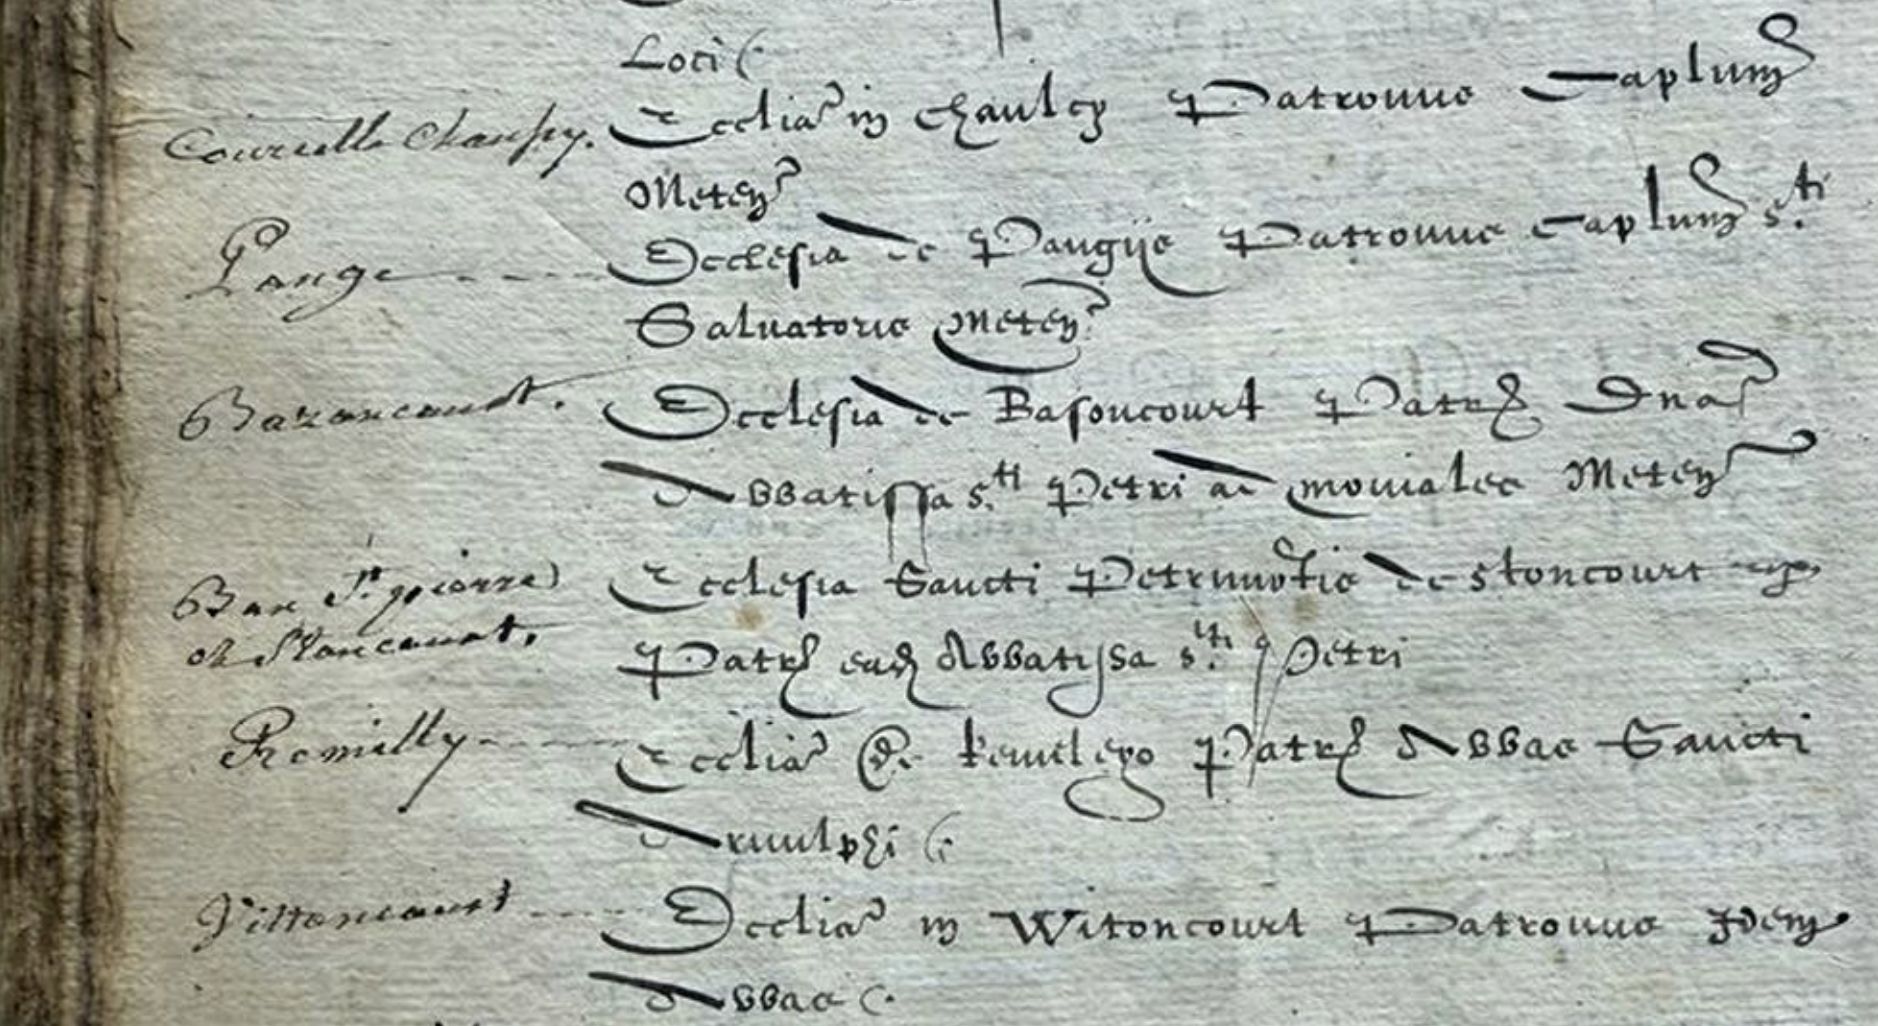 Loci
Courcelle Chaussy. Ecclia in Chaulcy Patronus Caplum
Meten
Pange Ecclesia de Pangije Patronus Caplum sti
Saluatoris Meten
Bazoncourt. Ecclesia de Basoncourt Patr Dna
Abbatissa sti Petri ad moniales Meten
Ban St pierre Ecclesia Sancti Petri de Stoncourt
et Stoncourt. Patr ead Abbatissa sti Petri
Remilly Ecclia de Patr Abbas Sancti
Arnulphi
Vittoncourt Ecclia in Witoncourt Patronus Idem
Abbas